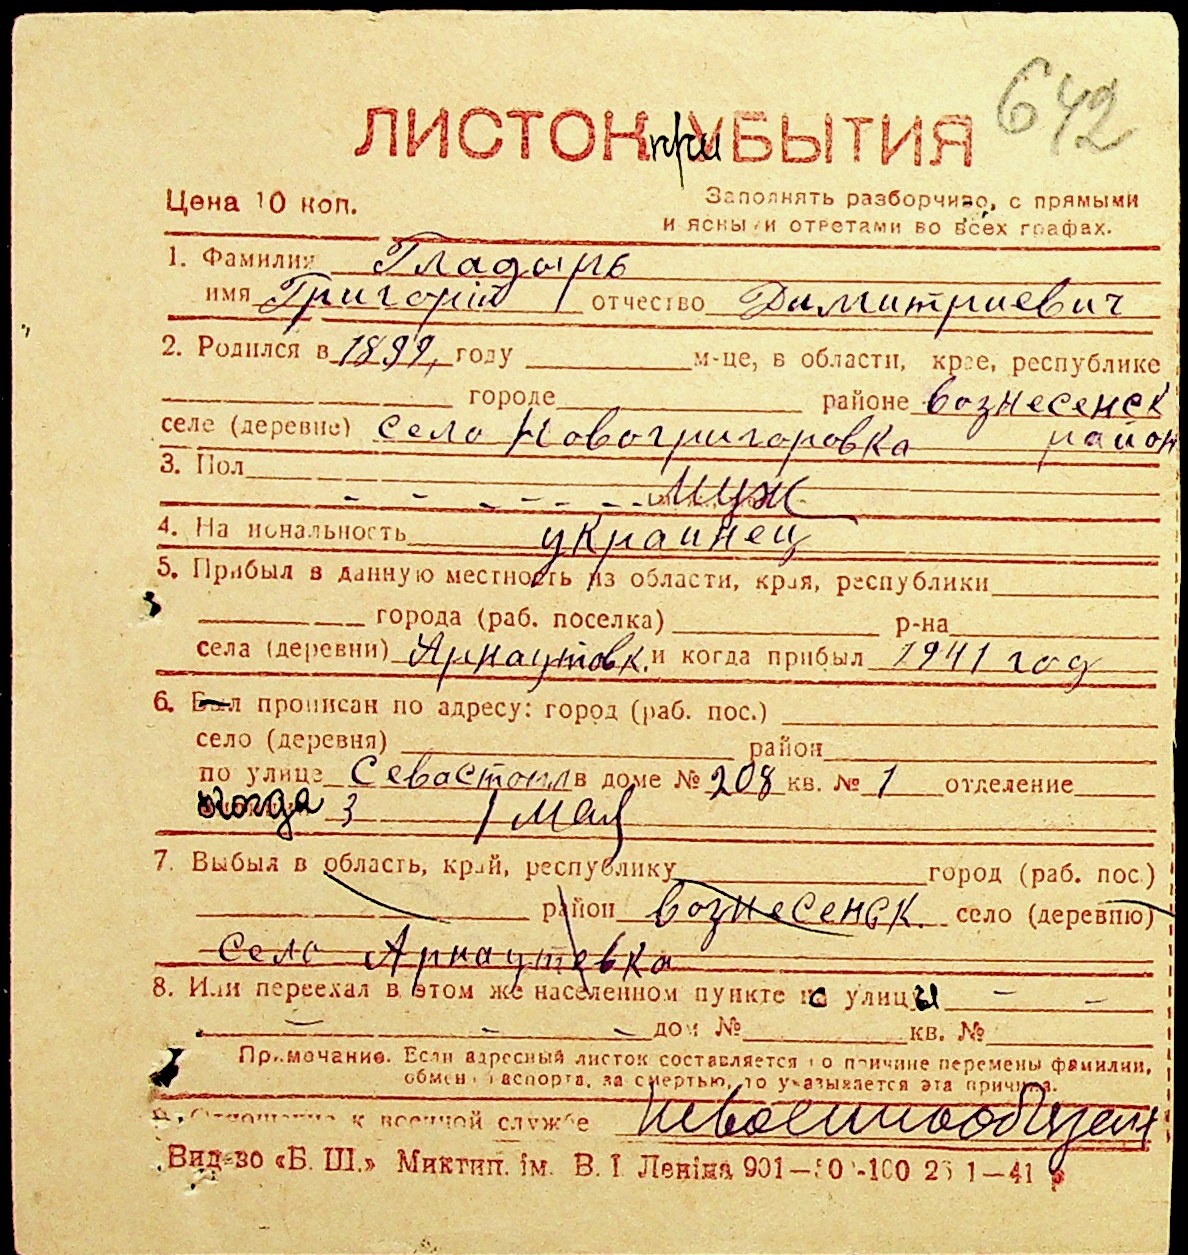 642
ЛИСТОК при УБЫТИЯ
Цена 10 коп.
Заполнять разборчиво, с прямыми
и ясными ответами во всех графах.
1. Фамилия Гладырь
имя Григорій отчество Димитриевич
2. Родился в 1899, году м-це, в области, крае, республике
городе районе Вознесенск
селе (деревне) село Новогригоровка район
3. Пол муж
4. Национальность украинец
5. Прибыл в данную местность из области, края, республики
города (раб. поселка) р-на
села (деревни) Арнаутовк. и когда прибыл 1941 год
6. Был прописан по адресу: город (раб. пос.)
село (деревня) район
по улице Севастоплв доме № 208 кв. № 1 отделение
когда 3 1 мая
7. Выбыл в область, край, республику город (раб. пос.)
район Вознесенск. село (деревню)
село Арнаутевка
8. Или переехал в этом же населенном пункте с улицы
дом № кв. №
Примечание. Если адресный листок составляется по причине перемены фамилии,
обмена паспорта, за смертью, то указывается эта причина.
9. Отношение к военной службе невоеннообязан
Вид-во «Б. Ш.» Миктип. ім. В. І Леніна 901— -100 1—41 р